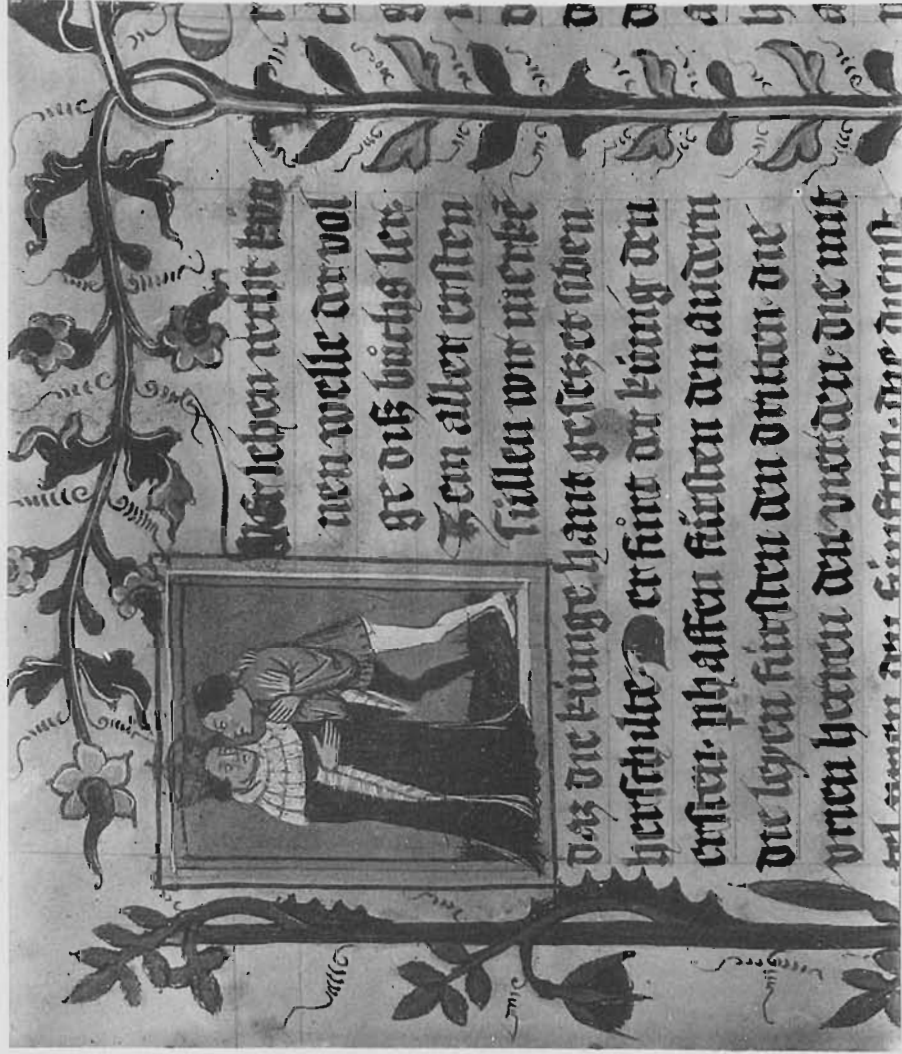 Wer lehen recht kün
nen welle der vol
ge diß bůchs ler
Zem allen ersten
süllen wir merkē
daz die künige hant gesetzet siben
herschilte. Der fürt der künig den
ersten. phaffen fürsten den andern
die leyen fürsten den dritten die
vrien herren den vierden. die mit
den fünften. die dienst